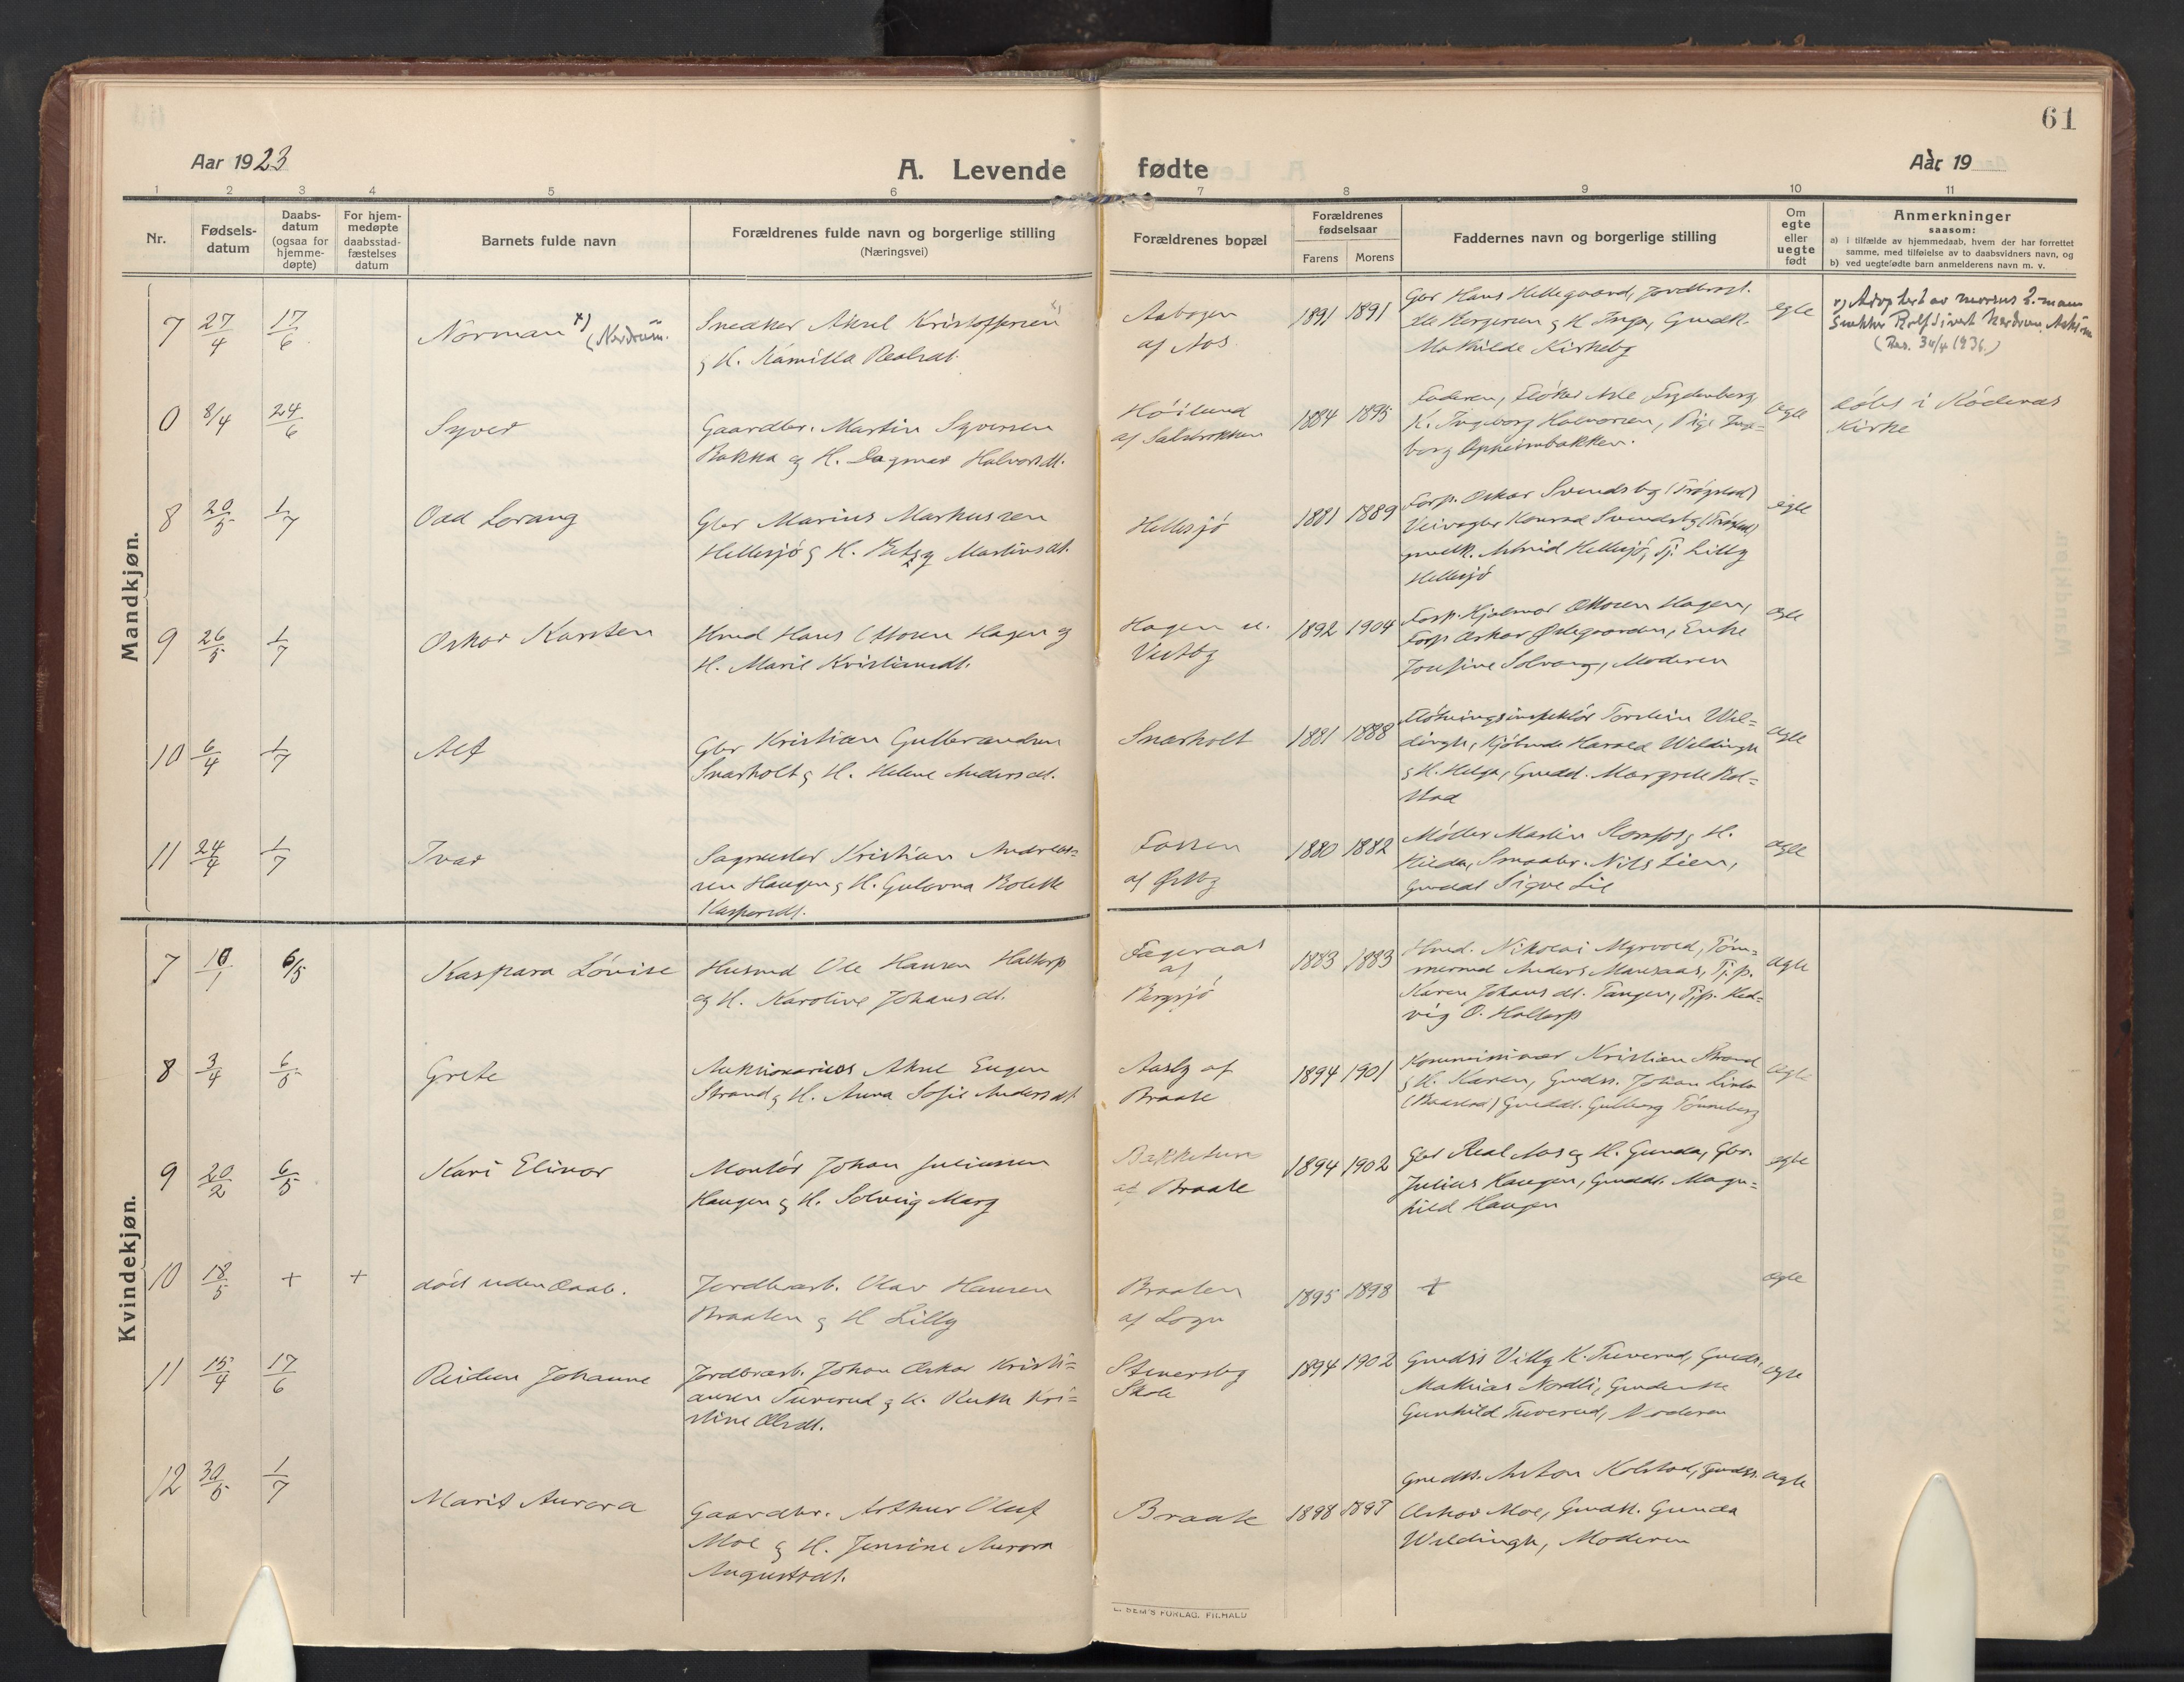 61
Aar 1923
A. Levende fødte
Aar 19
1 2 3 4 5 6 7 8 9 10 11
Nr.
Fødsels-
datum
Daabs-
datum
(ogsaa for
hjemme-
døpte)
For hjem-
medøpte
daabsstad-
fæstelses
datum
Barnets fulde navn
Forældrenes fulde navn og borgerlige stilling
(Næringsvei)
Forældrenes bopæl
Forældrenes
fødselsaar
Farens Morens
Faddernes navn og borgerlige stilling
Om
egte
eller
uegte
født
Anmerkninger
saasom:
a) i tilfælde av hjemmedaab, hvem der har forrettet
samme, med tilføielse av to daabsvidners navn, og
b) ved uegtefødte barn anmelderens navn m. v.
Mandkjøn.
7 27/4 17/6
Norman x) (Nerdrum.
Snedker Aksel Kristoffersen
& H. Kamilla Realsdt.
Aabogen
af Aos
1891 1891
Gbr Hans Hellegaard, Jordbrugt.
Ole Bergersen & H Inga, Gmdk.
Mathilde Kirkeby
egte
x) Adoptert av morens 2. mann
Snekker Rolf Sivert Nerdrum, Askim
(Res. 30/4 1936.)
0 8/4 24/6
Syver
Gaardbr. Martin Syversen
Bakka og H. Dagmar Halvorsdt.
Høilund
af Salsbrokken
1884 1895
Faderen, Fløter Nils Frydenberg
K. Ingeborg Halvorsen, Pige Inge=
borg Opheimbakken.
ægte
døbt i Rødenæs
Kirke
8 20/5 1/7
Odd Lorang
Gbr Marius Markussen
Hellesjø & H. Betzy Martinsdt.
Hellesjø
1881 1889
Forp. Oskar Svendsby (Trøgstad)
Veivogter Konrad Svendsby (Trøgstad)
gmdk. Astrid Hellesjø, Tj. Lilly
Hellesjø
egte
9 26/5 1/7
Oskar Karsten
Hmd Hans Ottosen Hagen og
H. Marie Kristiansdt.
Hagen u.
Vestby
1892 1904
Forp. Hjalmar Ottosen Hagen,
Forp Oskar Østegaarden, Enke
Josefine Solvang, Moderen
ægte
10 6/4 1/7
Alf
Gbr Kristian Gulbrandsen
Snarholt & H. Helene Andersdt.
Snarholt
1881 1888
Fløtningsinspektør Torstein Wel=
dingh, Kjøbmd Harald Weldingh
& H. Helga, Gmdd. Margrete Kol=
stad
ægte
11 24/4 1/7
Ivar
Sagmester Kristian Andreas=
sen Haugen & H. Gulovna Bolette
Kaspersdt.
Fossen
af Østby
1880 1882
Møller Martin Stomperud & H.
Hilda, Smaabr. Nils Lien,
Gmddt Signe Lie
ægte
Kvindekjøn.
7 10/1 6/5
Kaspara Lovise
Husmd Ole Hansen Haltorp
og H. Karoline Johansdt.
Fageraas
af
Bergsjø
1883 1883
Hmd. Nikolai Myrvold, Tøm=
mermd Anders Mausaas, Tj.p.
Karen Johansdt. Tangen, Tjp. Hed=
vig O. Haltorp
ægte
8 3/4 6/5
Grete
Auktionarius Aksel Eugen
Strand & H. Anna Sofie Andersdt
Aasly af
Braate
1894 1901
Kommissionær Kristian Strand
& H. Karen, Gmdss. Johan Lista
(Baastad) Gmddt. Gulborg Tønneberg
ægte
9 20/2 6/5
Kari Elinor
Montør Johan Juliussen
Haugen & H. Solveig Marg
Bakketun
af Braate
1894 1902
Gbr Real Aos og H. Gunda, Gbr.
Julius Haugen, Gmddt. Magn=
hild Haugen
egte
10 18/5 + +
død uden daab.
Jordbrarb. Olav Hansen
Braaten & H Lilly
Braaten
af Logn
1895 1898
+
ægte
11 15/4 17/6
Reidun Johanne
Jordbrarb. Johan Oskar Kristi=
ansen Tuverud & H. Ruth Kri=
stine Olsdt.
Stenersby
Skole
1894 1902
Gmdss Villy K. Tuverud, Gmdss.
Mathias Nordli, Gmdenke
Gunhild Tuverud, Moderen
ægte
12 30/5 1/7
Marit Aurora
Gaardbr. Arthur Oluf
Moe & H. Jensine Aurora
Augustsdt.
Braate
1898 1897
Gmdss. Anton Kolstad, Gmdss.
Oskar Moe, Gmdst. Gunda
Weldingh, Moderen
ægte
E. SEM'S FORLAG. FR.HALD